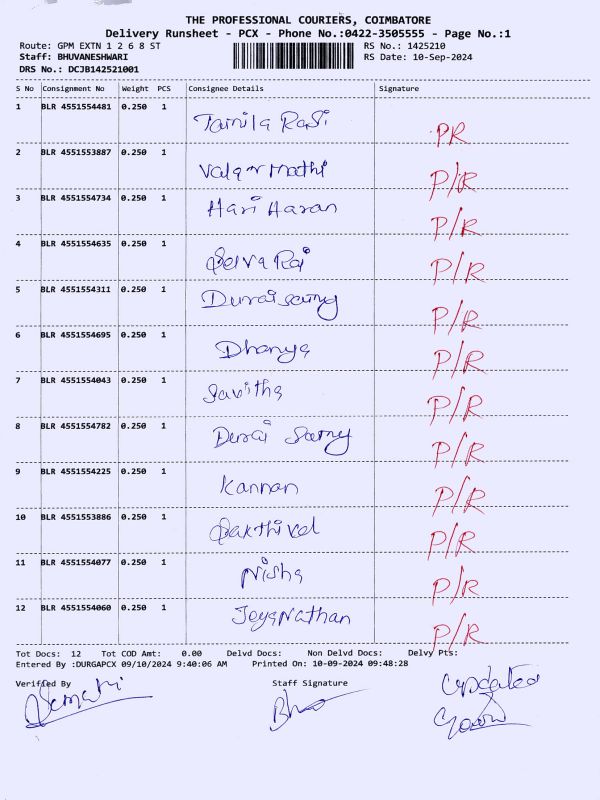 THE PROFESSIONAL COURIERS, COIMBATORE
Delivery Runsheet - PCX - Phone No.:0422-3505555 - Page No.:1
Route: GPM EXTN 1 2 6 8 ST RS No.: 1425210
Staff: BHUVANESHWARI RS Date: 10-Sep-2024
DRS No.: DCJB142521001
S No Consignment No Weight PCS Consignee Details Signature
1 BLR 4551554481 0.250 1 Tamila Rasi PR
2 BLR 4551553887 0.250 1 Valarmathi P/R
3 BLR 4551554734 0.250 1 Hari Haran P/R
4 BLR 4551554635 0.250 1 Selva Raj P/R
5 BLR 4551554311 0.250 1 Duraisamy P/R
6 BLR 4551554695 0.250 1 Dhanya P/R
7 BLR 4551554043 0.250 1 Savitha P/R
8 BLR 4551554782 0.250 1 Durai Samy P/R
9 BLR 4551554225 0.250 1 Kannan P/R
10 BLR 4551553886 0.250 1 Sakthivel P/R
11 BLR 4551554077 0.250 1 Nisha P/R
12 BLR 4551554060 0.250 1 Jeyanathan P/R
Tot Docs: 12 Tot COD Amt: 0.00 Delvd Docs: Non Delvd Docs: Delvy Pts:
Entered By :DURGAPCX 09/10/2024 9:40:06 AM Printed On: 10-09-2024 09:48:28
Verified By Staff Signature Updated